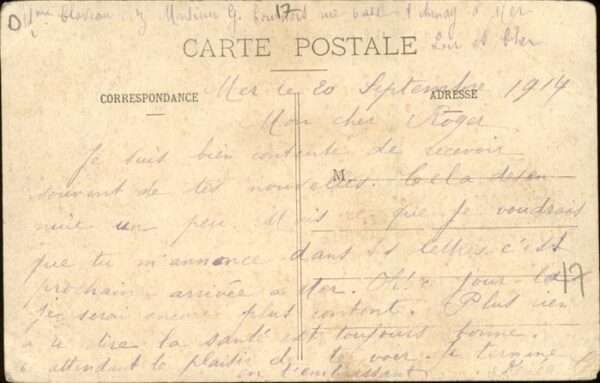 Mme Claveau chez Monsieur G. rue
17
à Mer
Loir et Cher
CARTE POSTALE
CORRESPONDANCE
ADRESSE
Mer le 20 Septembre 1914
Mon cher Roger
Je suis bien contente de recevoir
souvent de tes nouvelles. Cela desen
M
nuie un peu. Mais ce que je voudrais
que tu m'annonce dans tes lettres c'est
prochain arrivée à Mer. Oh! jour la
17
je serai encore plus contente. Plus rien
a te dire la santé est toujours bonne.
attendant le plaisir de te voir je termine
en t'embrassant